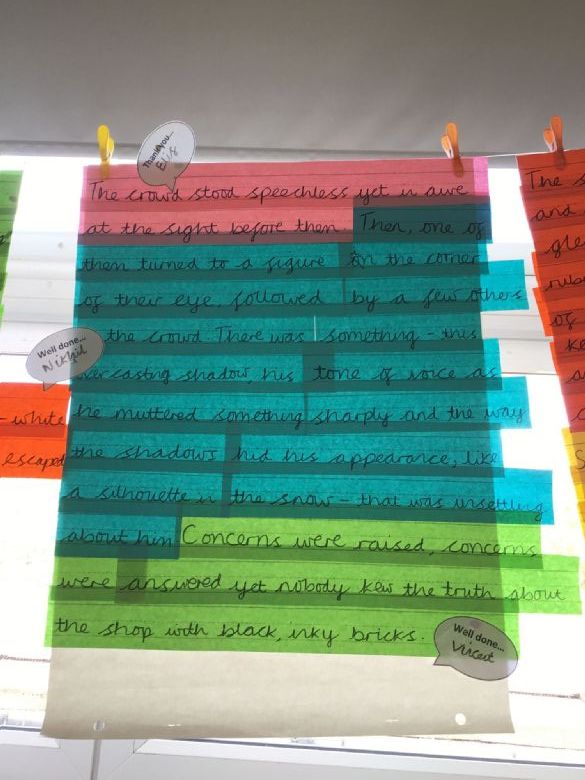 Thank you...
Elis
The crowd stood speechless yet in awe
at the sight before then. Then, one of
them turned to a figure on the corner
of their eye, followed by a few others
the crowd. There was something - this
overcasting shadow, his tone of voice as
he muttered something sharply and the way
the shadows hid his appearance, like
a silhouette in the snow - that was unsettling
about him. Concerns were raised, concerns
were answered yet nobody kew the truth about
the shop with black, inky bricks.
Well done...
Nikhil
Well done...
Vincent
- white
escaped
The s
and
gle
rub
of
ke
a
S